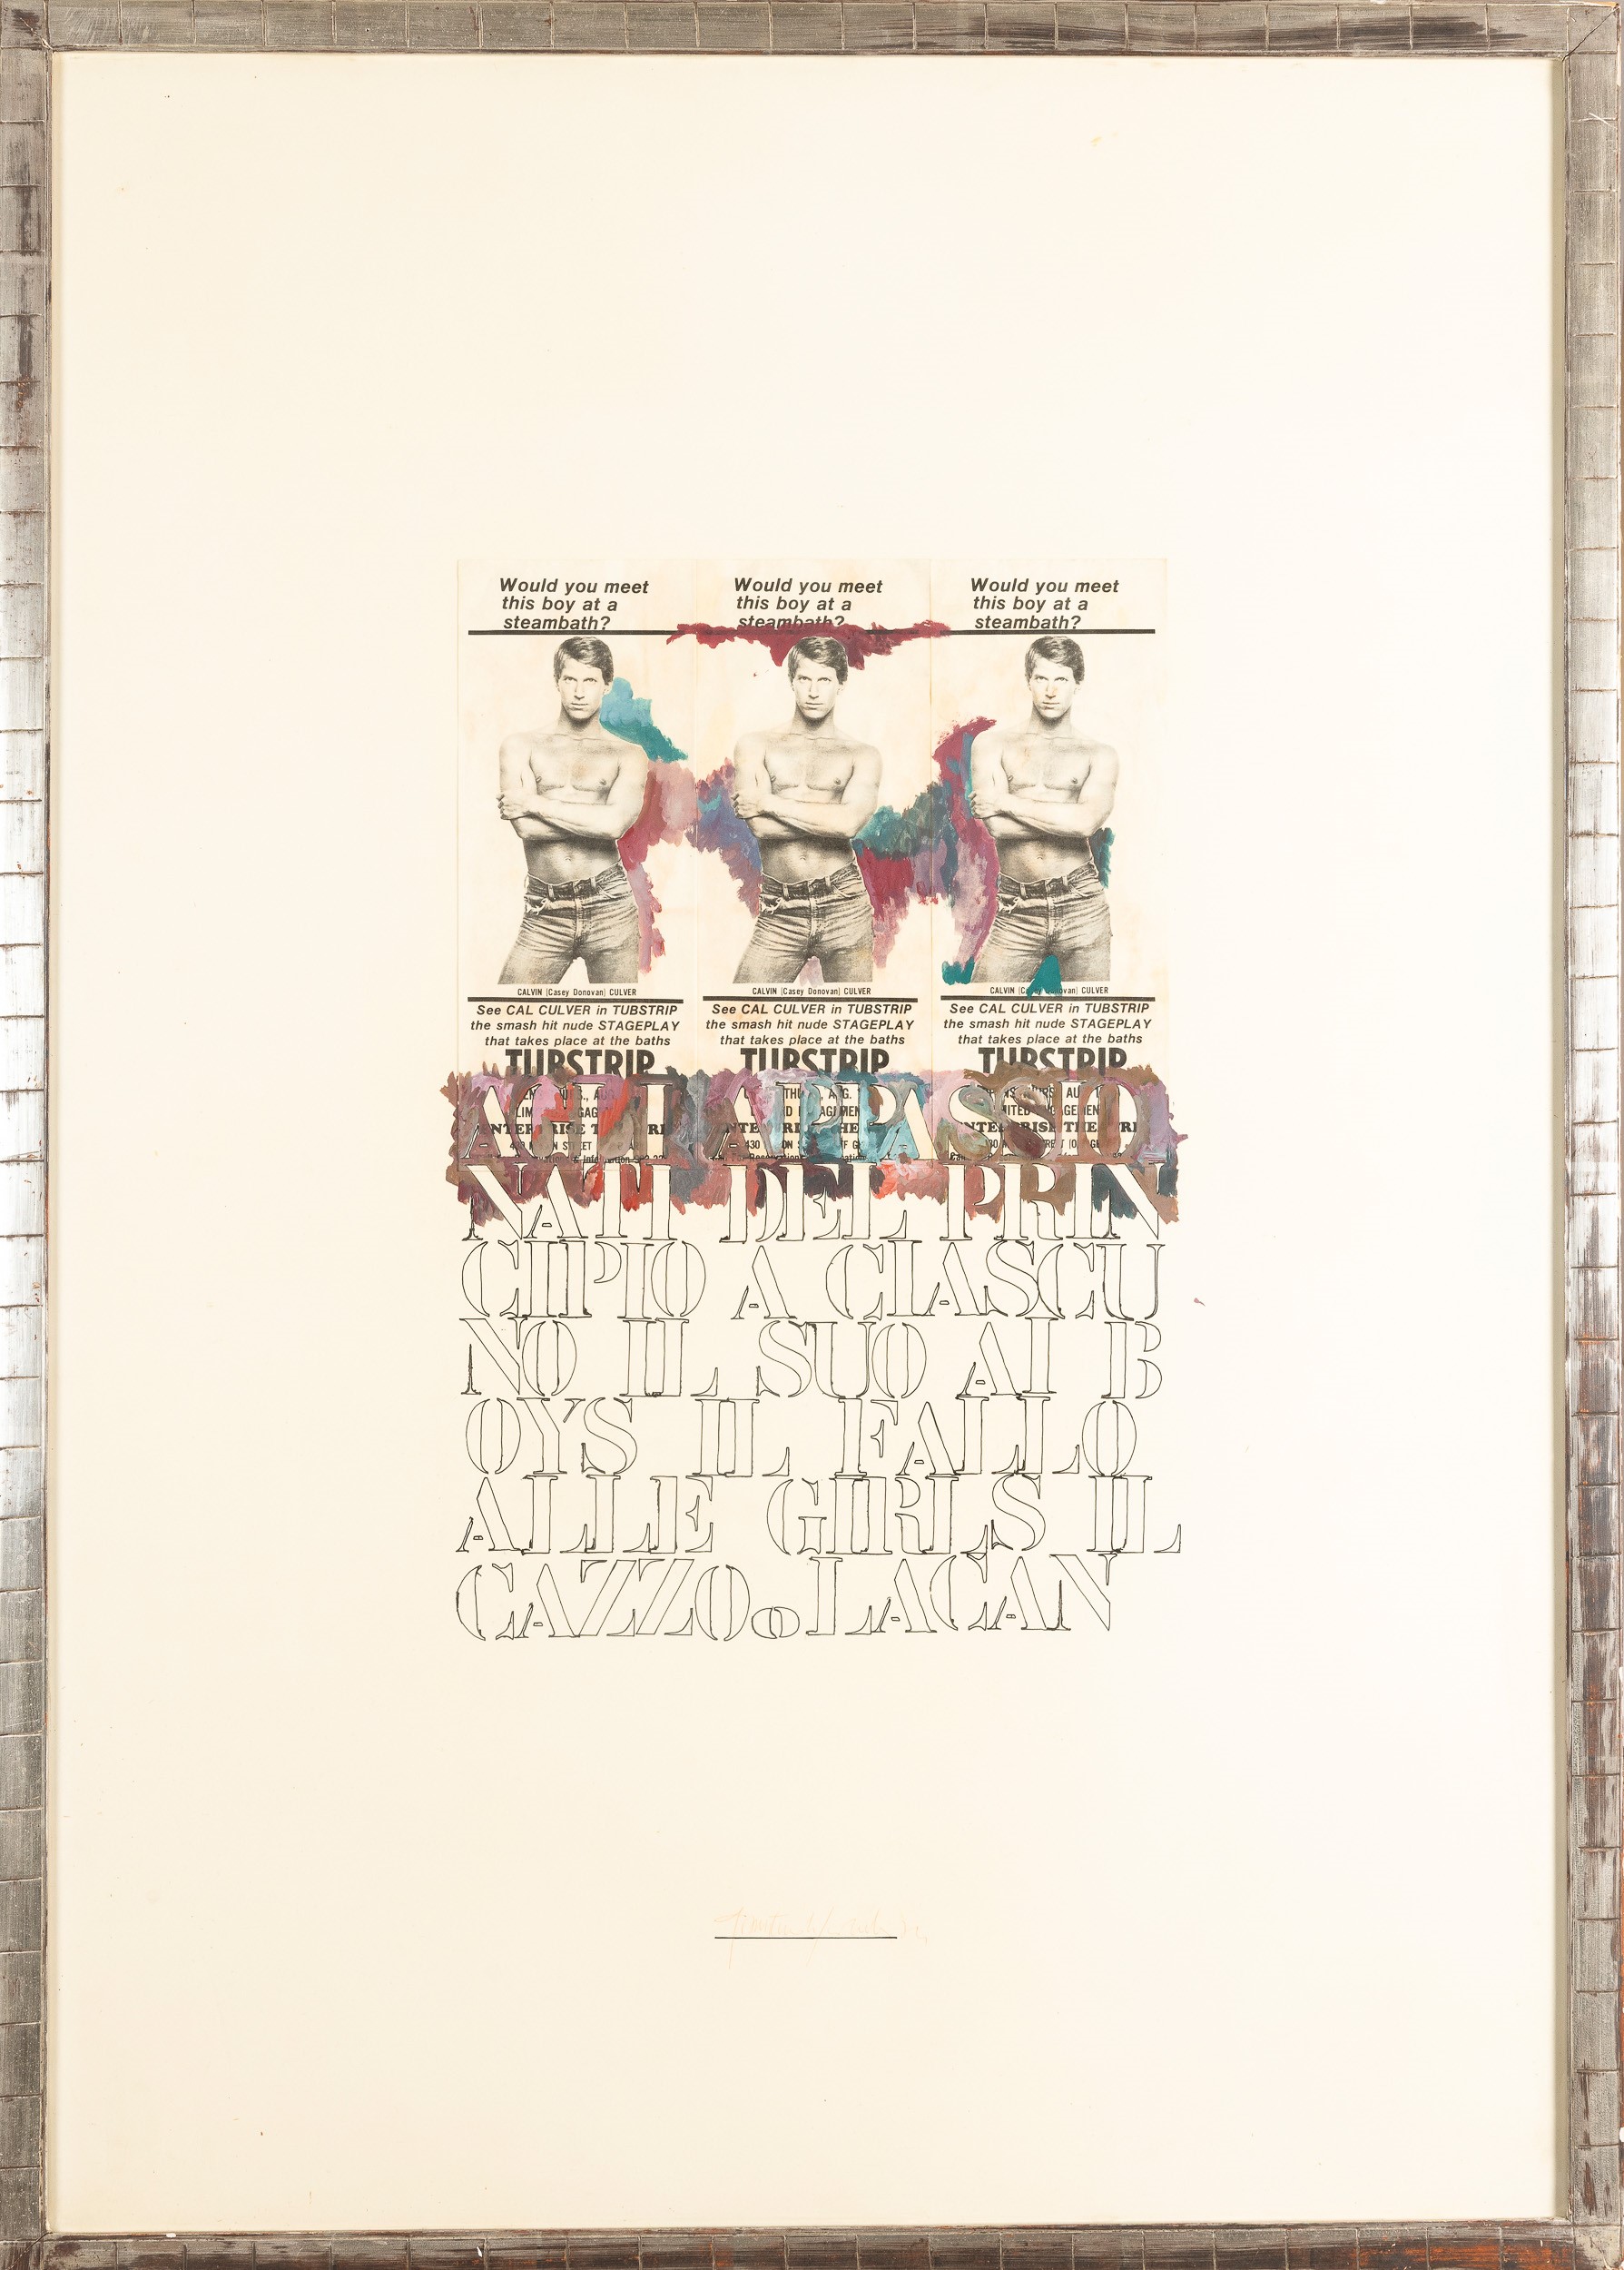 Would you meet
this boy at a
steambath?
CALVIN (Casey Donovan) CULVER
See CAL CULVER in TUBSTRIP
the smash hit nude STAGEPLAY
that takes place at the baths
TUBSTRIP
Would you meet
this boy at a
steambath?
CALVIN (Casey Donovan) CULVER
See CAL CULVER in TUBSTRIP
the smash hit nude STAGEPLAY
that takes place at the baths
TUBSTRIP
Would you meet
this boy at a
steambath?
CALVIN (Casey Donovan) CULVER
See CAL CULVER in TUBSTRIP
the smash hit nude STAGEPLAY
that takes place at the baths
TUBSTRIP
AGLI APPASSIO
NATI DEL PRIN
CIPIO A CIASCU
NO IL SUO AI B
OYS IL FALLO
ALLE GIRLS IL
CAZZO. LACAN